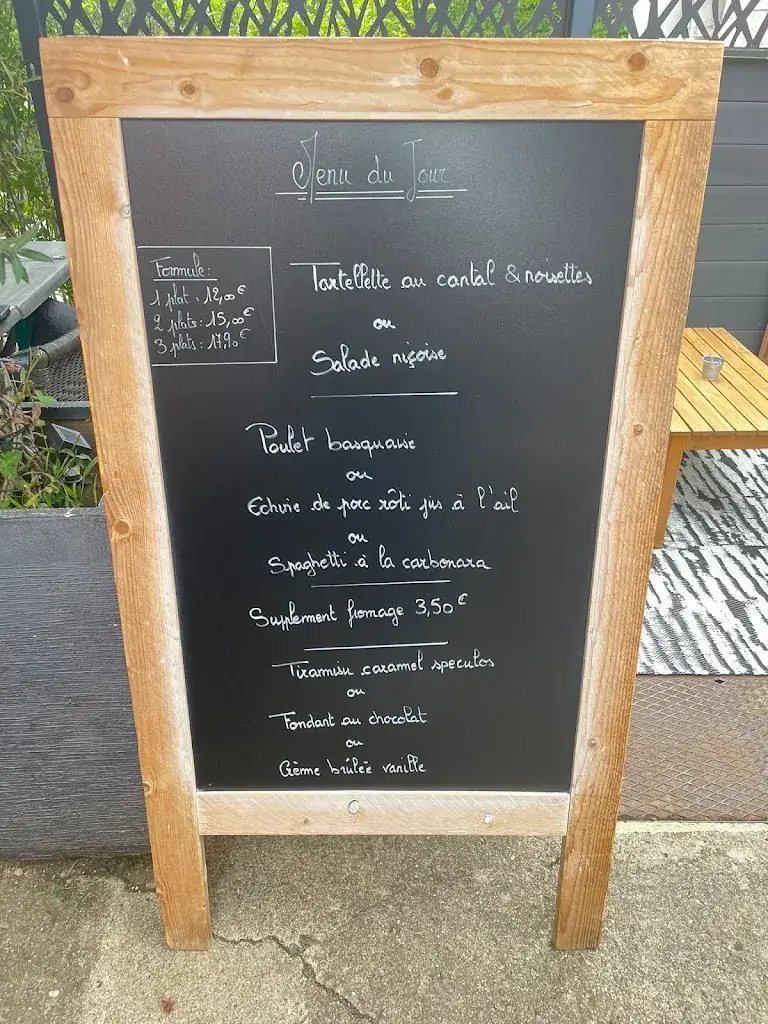 Menu du Jour
Formule :
1 plat : 12,00€
2 plats : 15,00€
3 plats : 17,90€
Tartellette au cantal & noisettes
ou
Salade niçoise
Poulet basquaise
ou
Echine de porc rôti jus à l'ail
ou
Spaghetti à la carbonara
Suplement fromage 3,50€
Tiramisu caramel speculos
ou
Fondant au chocolat
ou
Crème brûlée vanille